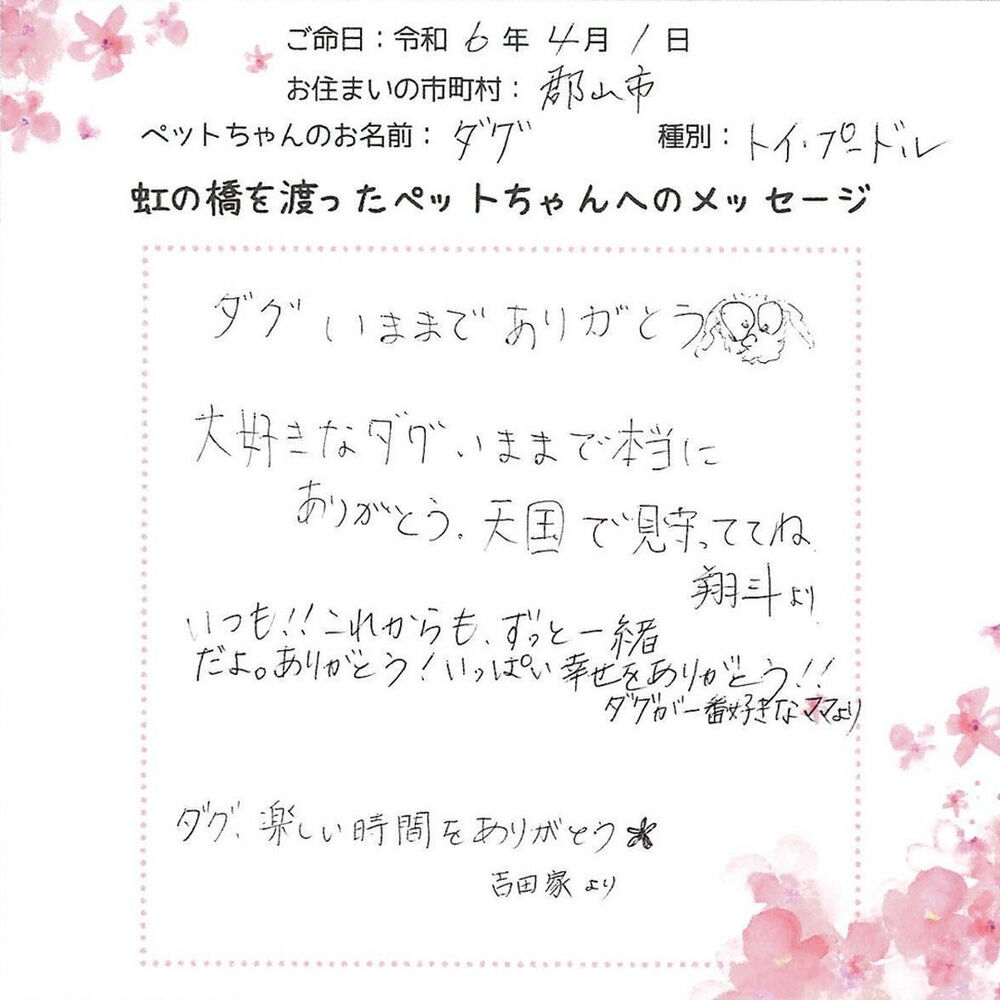 ご命日：令和 6 年 4 月 1 日
お住まいの市町村： 郡山市
ペットちゃんのお名前： ダグ 種別： トイ・プードル
虹の橋を渡ったペットちゃんへのメッセージ
ダグ いままで ありがとう
大好きなダグ いままで本当に
ありがとう. 天国で見守っててね
翔斗より
いつも!!これからも、ずっと一緒
だよ。ありがとう!いっぱい幸せをありがとう!!
ダグが一番好きなママより
ダグ、楽しい時間をありがとう
吉田家より